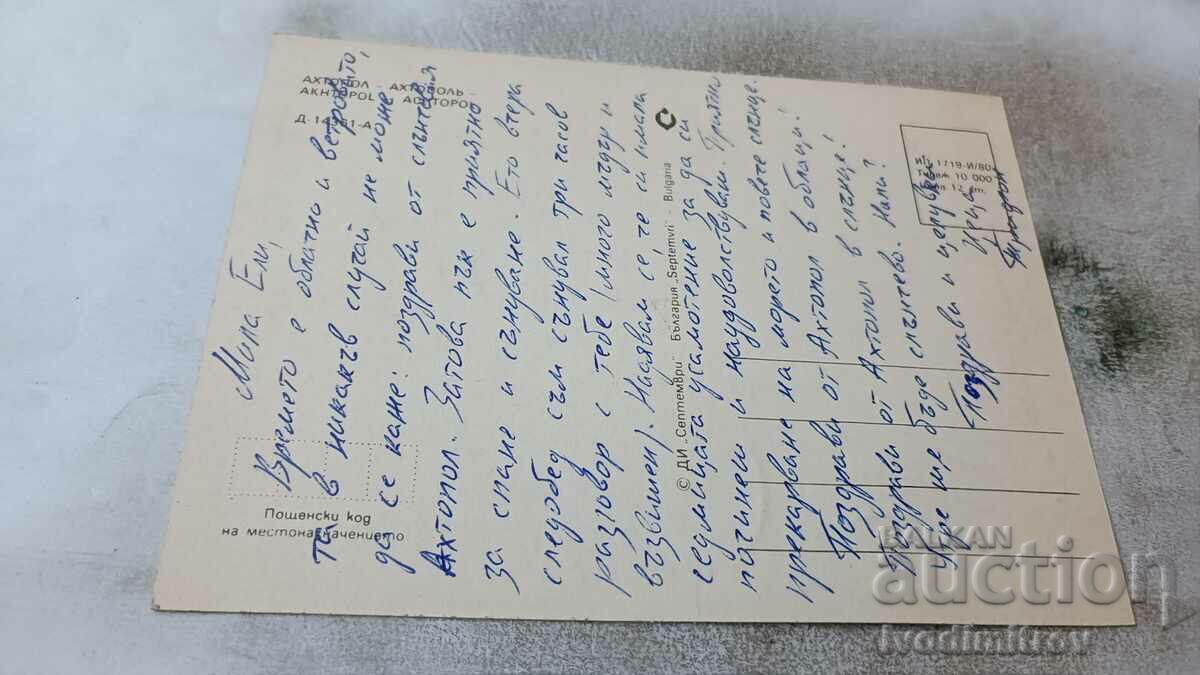 АХТОПОЛ - АХТОПОЛЬ -
AKHTOPOL - ACHTOPOL
Д-14961-А
Мила Ели,
Времето е облачно и ветровито,
та в никакъв случай не може
да се каже: поздрави от слънчевия
Ахтопол. Затова пък е приятно
за спане и сънуване. Ето вчера
следобед съм сънувал три часов
разговор с тебе (много мъдър и
възвишен). Надявам се, че си имала
седмицата усамотение за да си
починеш и наудоволстваш. Приятно
прекарване на морето и повече слънце.
Поздрави от Ахтопол в облаци!
Поздрави от Ахтопол в слънце!
Утре ще бъде слънчево. Нали?
Поздрави и целувки
© ДИ „Септември" България „Septemvri" - Bulgaria
Изд. 1719-И/80
Тираж 10 000
Цена 12 ст.
Пощенски код
на местоназначението
BALKAN
auction
ivodimitrov